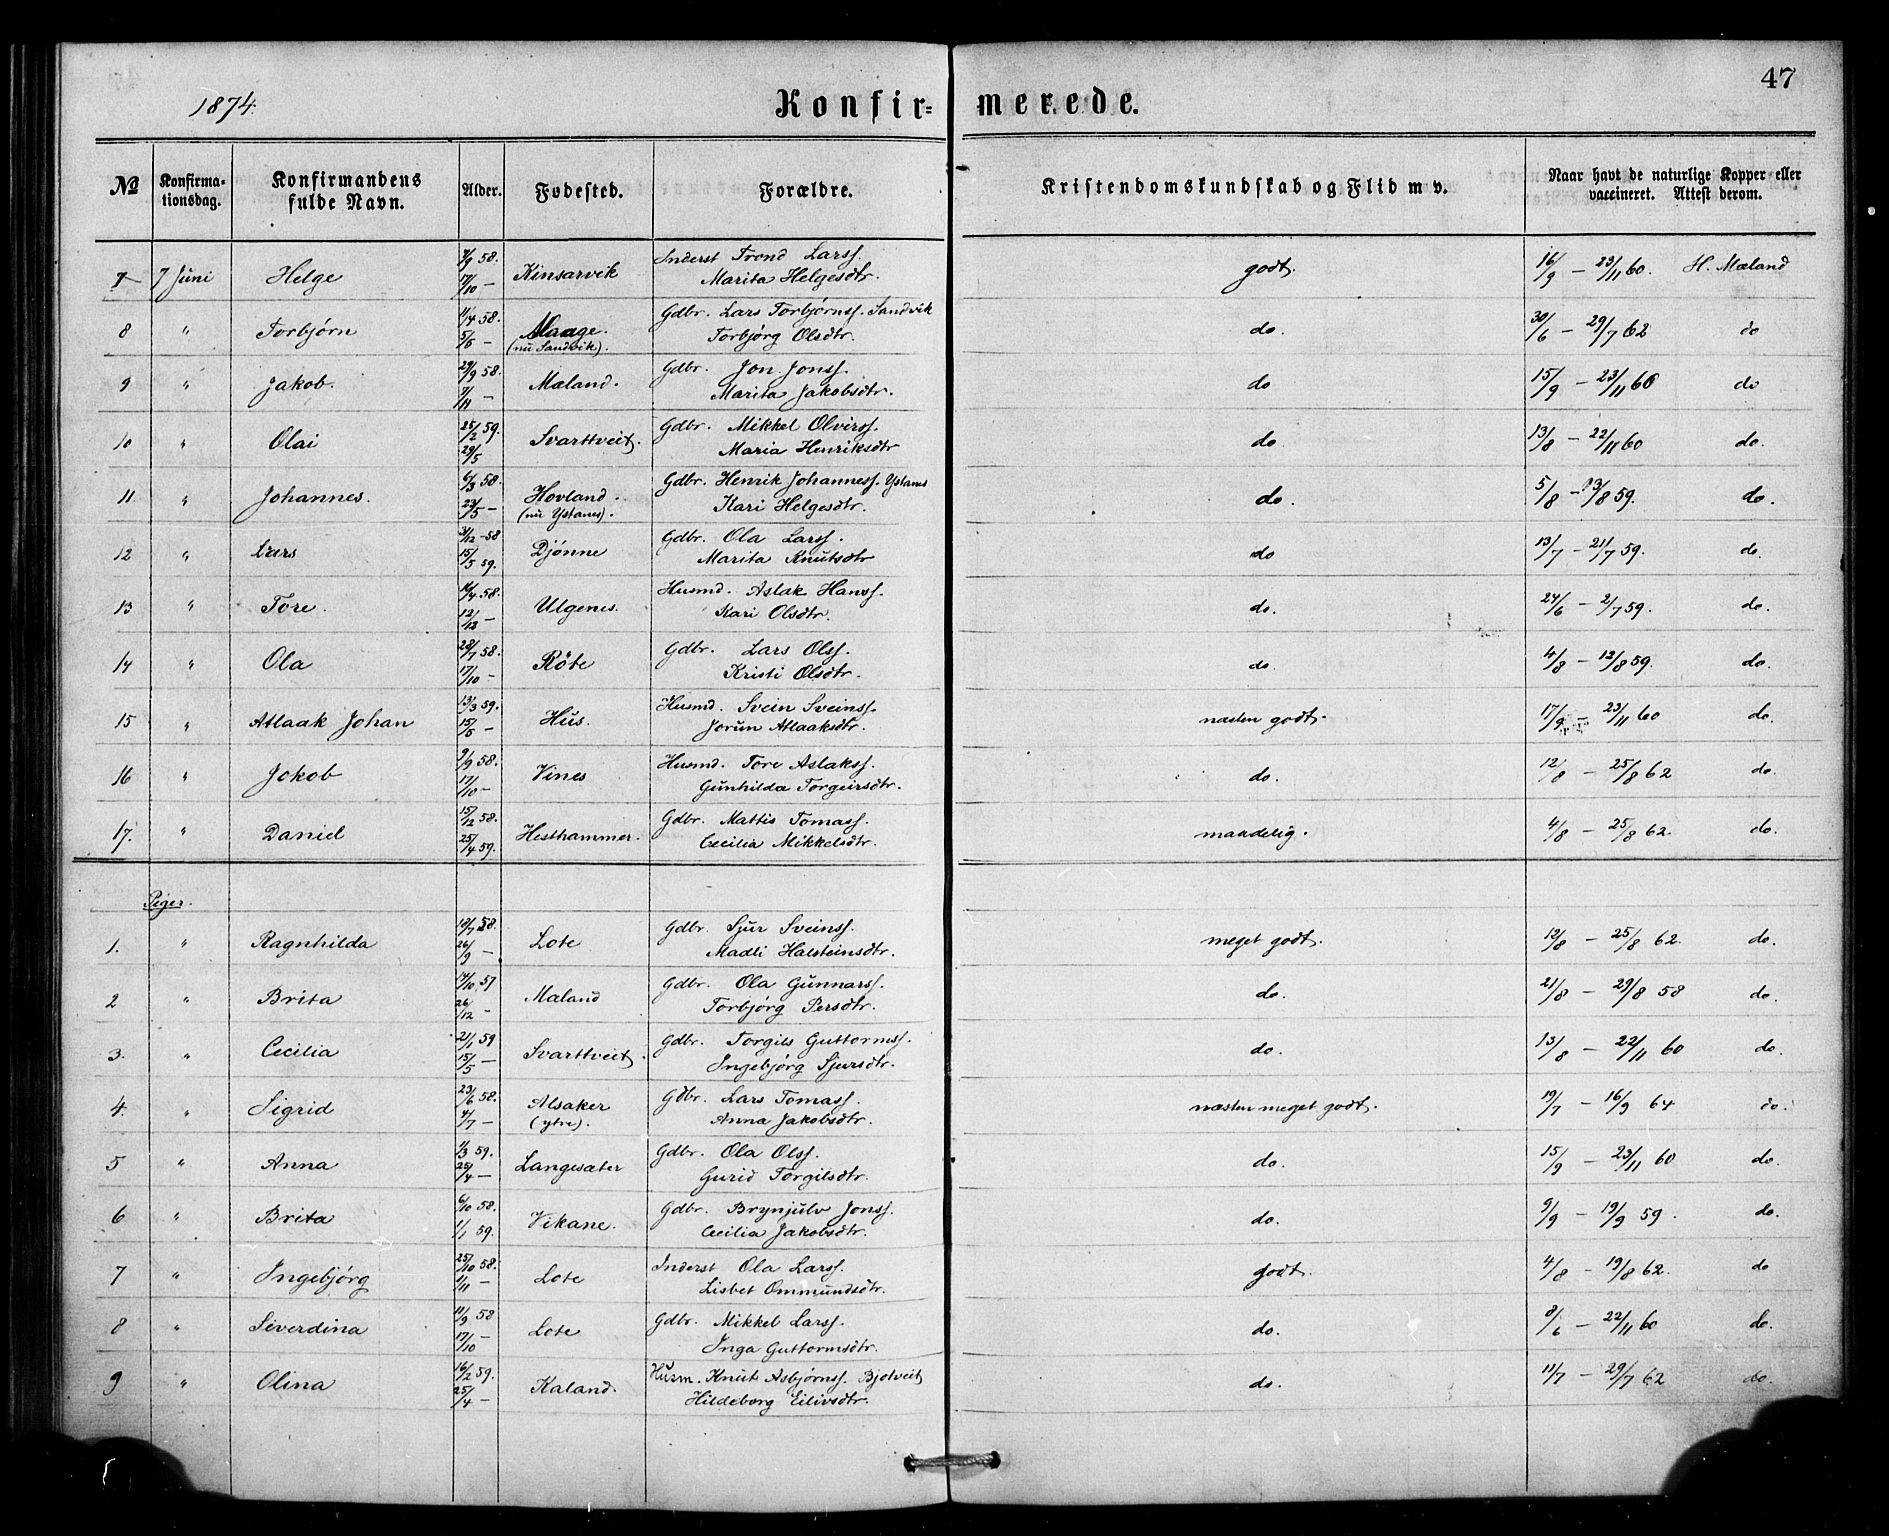 1874.
Konfir=
merede.
47
No
Konfirma-
tionsdag.
Konfirmandens
fulde Navn.
Alder.
Fodested.
Forældre.
Kristendomskundskab og Flid m v.
Naar havt de naturlige Kopper eller
vaccineret. Attest derom.
7 7 Juni Helge 7/9 58. 17/10 — Kinsarvik Inderst Trond Larss. godt. 16/9 — 23/11 60. H. Mæland
Marita Helgesdtr.
8 " Torbjørn 11/4 58. 5/6 — Maage. Gdbr. Lars Torbjørnss. Sandvik do. 30/6 — 29/7 62 do
(nu Sandvik). Torbjørg Olsdtr.
9 " Jakob. 29/9 58. 7/11 — Mæland. Gdbr. Jon Jonss. do 15/9 — 23/11 60 do
Marita Jakobsdtr.
10 " Olai 25/2 59. 29/5 Svarttveit. Gdbr. Mikkel Olvirss. do 13/8 — 22/11 60 do.
Maria Henriksdtr
11. " Johannes. 6/3 58. 23/5 — Hovland. Gdbr. Henrik Johanness. Ystanes do. 5/8 — 13/8 59. do.
(nu Ystanes). Kari Helgesdtr.
12 " Lars 31/12 - 58 15/5 59. Djønne Gdbr. Ola Larss. do 13/7 — 21/7 59. do.
Marita Knutsdtr
13 " Tore. 16/4 58. 12/12 — Ulgenes. Husmd. Aslak Hanss. do. 24/6 — 2/7 59. do.
Kari Olsdtr.
14 " Ola 28/7 58. 17/10 — Røte Gdbr. Lars Olss. do. 4/8 — 12/8 59. do.
Kristi Olsdtr.
15 " Atlaak Johan 13/3 59. 15/5 — Hus. Husmd. Svein Sveinss. næsten godt. 17/9 — 23/11 60 do.
Jorun Atlaaksdtr.
16 " Jokob 9/9 58. 17/10 — Vines Husmd. Tore Aslakss. do. 12/8 — 25/8 62 do.
Gunhilda Torgeirsdtr.
17. " Daniel 15/12 58. 25/4 59. Hesthammer. Gdbr. Mattis Tomass. maadelig. 4/8 — 25/8 62. do.
Cecilia Mikkelsdtr.
Piger.
1. " Ragnhilda 18/7 58. 26/9 — Lote Gdbr. Sjur Sveinss. meget godt. 12/8 — 25/8 62. do.
Madli Halsteinsdtr.
2 " Brita 14/10 57 26/12 — Mæland Gdbr. Ola Gunnarss. do. 21/8 — 29/8 58 do.
Torbjørg Persdtr.
3. " Cecilia 21/1 59 15/5 — Svarttveit. Gdbr. Torgils Guttormss. do. 13/8 — 22/11 60 do.
Ingebjørg Sjursdtr.
4. " Sigrid 23/6 58. 4/7 — Alsaker Gdbr. Lars Tomass. næsten meget godt. 19/7 — 16/9 64 do.
(ytre). Anna Jakobsdtr.
5 " Anna 1/3 59. 25/4 — Langesæter Gdbr. Ola Olss. do. 15/9 — 23/11 60 do.
Gurid Torgilsdtr.
6 " Brita 6/10 58. 1/1 59. Vikane. Gdbr. Brynjulv Jonss. do. 9/9 — 19/9 59. do.
Cecilia Jakobsdtr.
7 " Ingebjørg 25/10 58. 1/11 — Lote Inderst Ola Larss. godt. 4/8 — 19/8 62. do
Lisbet Ommundsdtr.
8 " Siverdina 11/9 58 17/10 — Lote Gdbr. Mikkel Larss. do. 8/6 — 22/11 60 do.
Inga Guttormsdtr.
9 " Olina 16/2 59. 25/4 — Kaland. Husm. Knut Asbjørnss. Bjotveit do. 11/7 — 29/7 62 do.
Hildeborg Eilivsdtr.